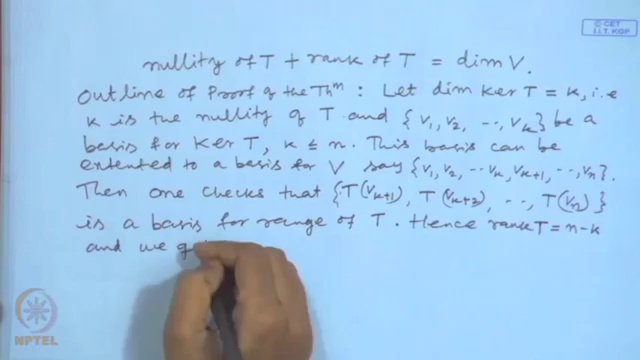 © CET
I.I.T. KGP
nullity of T + rank of T = dim V.
Outline of Proof of the Thᵐ : Let dim Ker T = k, i.e
k is the nullity of T and {v₁, v₂, ⋯, vₖ} be a
basis for Ker T, k ≤ n. This basis can be
extented to a basis for V say {v₁, v₂, ⋯ vₖ, vₖ₊₁, ⋯, vₙ}.
Then one checks that {T(vₖ₊₁), T(vₖ₊₂), ⋯, T(vₙ)}
is a basis for range of T. Hence rank T = n-k
and we g
NPTEL